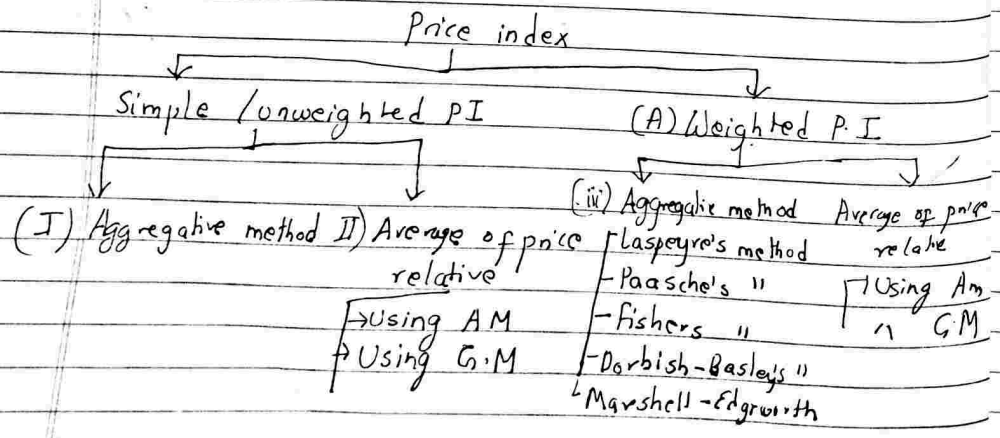 Price index
Simple / unweighted PI
(A) Weighted P.I
(I) Aggregative method
II) Average of price
relative
→Using AM
→ Using G.M
(iii) Aggregatie method
Laspeyre's method
- Paasche's "
- Fishers "
- Dorbish-Basley's "
Marshell-Edgrworth
Average of price
relate
Using Am
" G.M